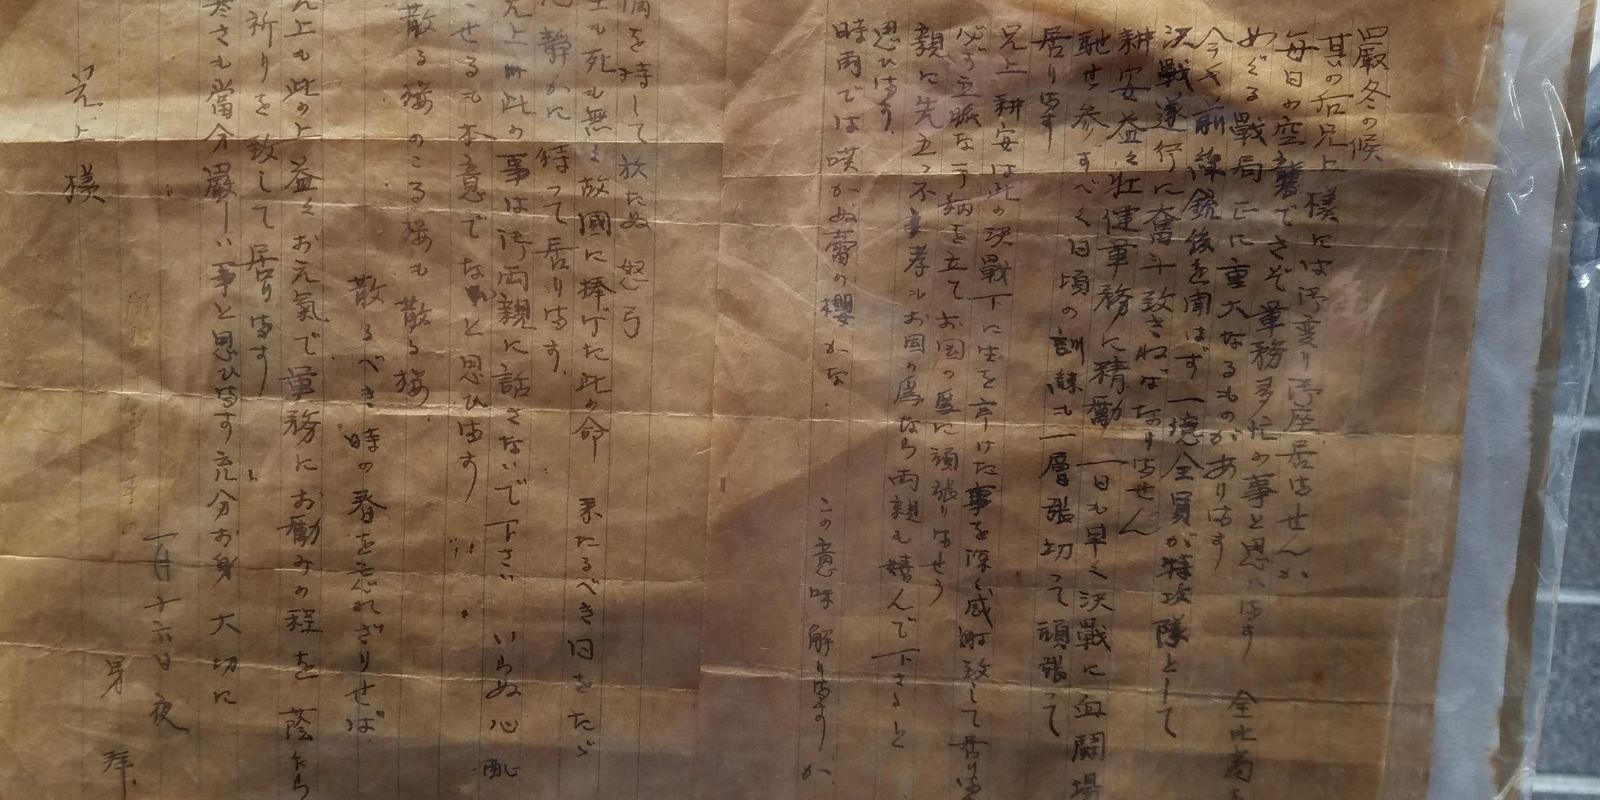 嚴冬の候
其の后兄上様には御変り御座居ませんか
毎日の空襲でさぞ軍務多忙の事と思ひます 全比島を
めぐる戰局正に重大なるものがあります
今や前線銃後を聞はず一億全員が特攻隊として
決戰遂行に奮斗致さねばなりません
耕安益々壮健軍務に精勵 一日も早く決戰に血闘場
馳せ参ずべく日頃の訓練も一層張切って頑張って
居ります
兄上 耕安は此の決戰下に生を享けた事を深く感謝致して居りま
必ず立派な手柄を立てお国の為に頑張りませう
親に先立つ不孝もお国の為なら両親も嬉んで下さると
思ひます
時雨では咲かぬ蕾の櫻かな
この意味解りますか
満を持して放たぬ怒弓
生も死も無く故國に捧げた此の命 来たるべき日をたゞ
静かに待って居ります
兄上此の事は御両親に話さないで下さい いらぬ心配
させるも本意でないと思ひます
散る桜のこる桜も散る桜
散るべき時の春を忘れざりせば
兄上も此の上益々お元氣で軍務にお勵みの程を蔭ながら
祈りを致して居ります
寒さも當分嚴しい事と思ひます充分お身大切に
一月十六日夜
兄上様
弟 拝